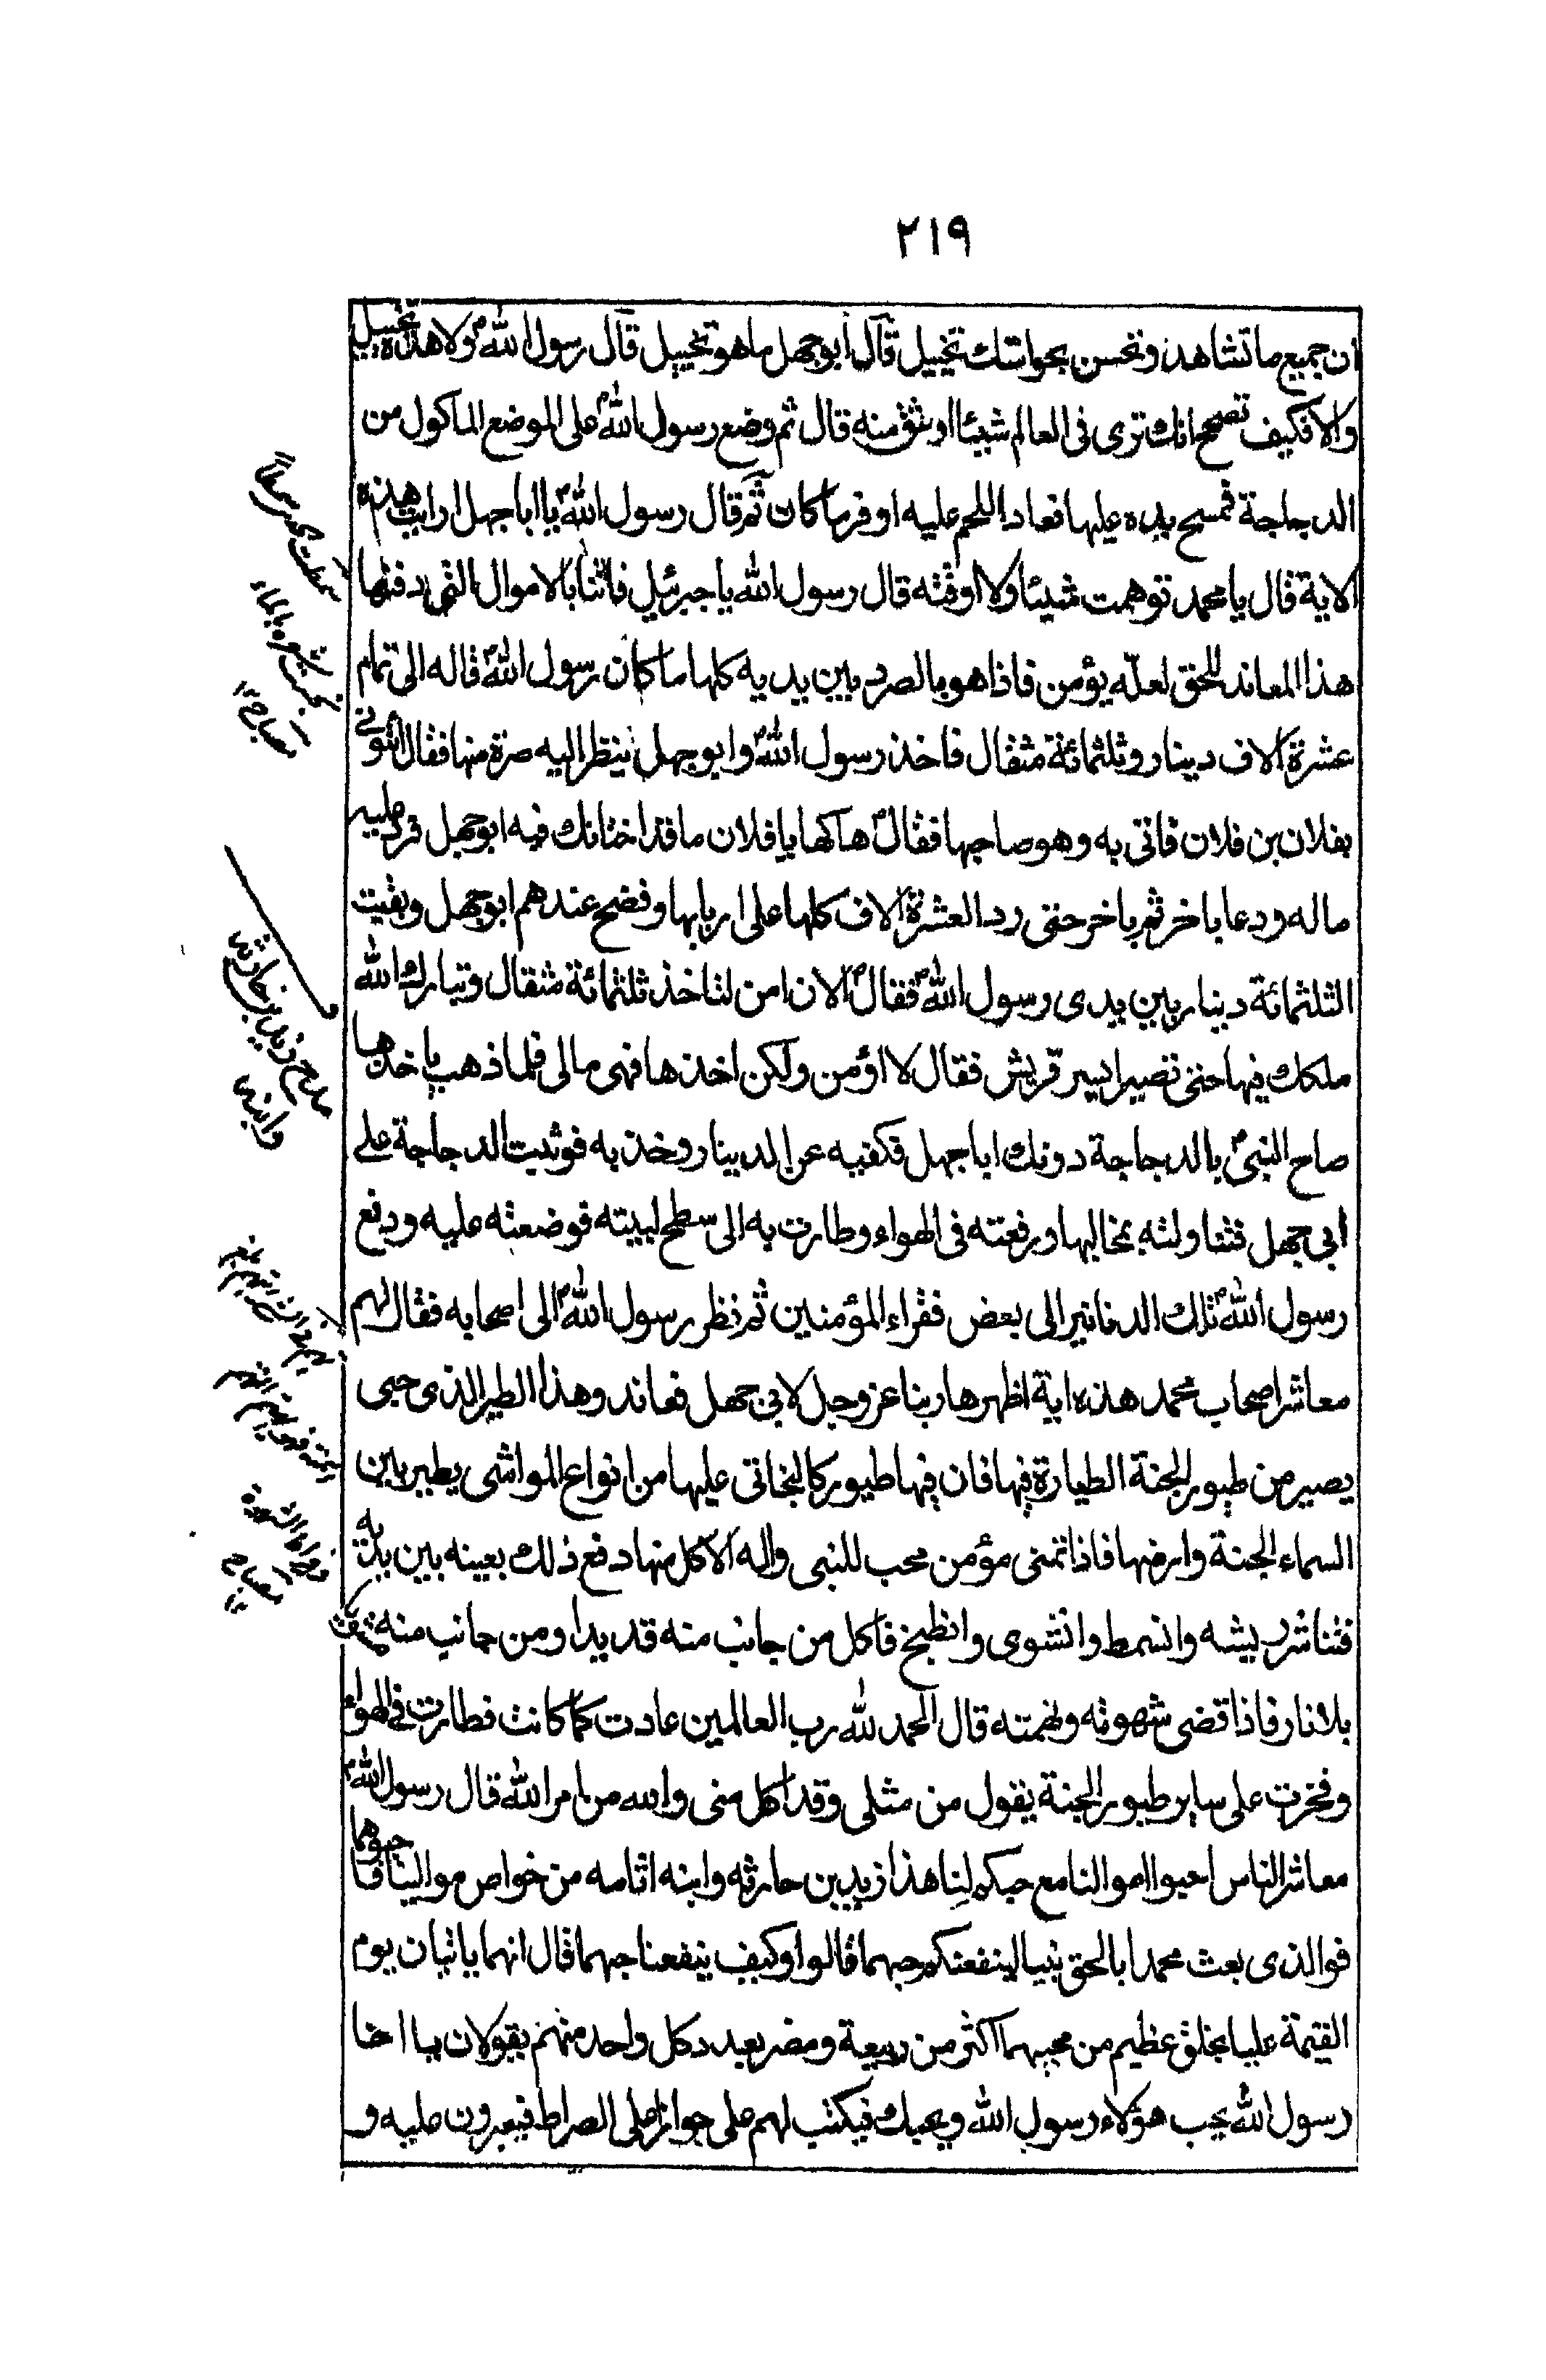 ٢١٩
ان جميع ما تشاهد وتحسن بحواسك تخييل قال ابو جهل ما هو تخييل قال رسول الله ولا هذا تخييل
والا فكيف تصحح انك ترى فى العالم شيئا اوثق منه قال ثم وضع رسول الله على الموضع الماكول من
الدجاجة فمسح يده عليها فعاد اللحم عليه اوفر ما كان ثم قال رسول الله يا ابا جهل ارايت هذه
الاية قال يا محمد توهمت شيئا ولا اوقنه قال رسول الله يا جبرئيل فاتنا بالاموال التى دفنها
هذا المعاند للحق لعله يؤمن فاذا هو بالصرد بين يديه كلها ما كان رسول الله قاله الى تمام
عشرة الاف دينار وثلثمائة مثقال فاخذ رسول الله وابو جهل ينظر اليه صرة منها فقال ائتونى
بفلان بن فلان فاتى به وهو صاحبها فقال هاكها يا فلان ما قد اختانك فيه ابو جهل فرد عليه
ماله ودعا باخر ثم باخر حتى رد العشرة الاف كلها على اربابها وفضح عندهم ابو جهل وبقيت
الثلثمائة دينار بين يدى رسول الله فقال الان امن لتاخذ ثلثمائة مثقال وتبارك الله
ملكك فيها حتى تصير ايسر قريش فقال لا اؤمن ولكن اخذها فهى مالى فلما ذهب ياخذها
صاح النبى بالدجاجة دونك ابا جهل فكفيه عن الدينار وخذ به فوثبت الدجاجة على
ابى جهل فتناولته بمخالبها ورفعته فى الهواء وطارت به الى سطح لبيته فوضعته عليه ودفع
رسول الله تلك الدنانير الى بعض فقراء المؤمنين ثم نظر رسول الله الى اصحابه فقال لهم
معاشر اصحاب محمد هذه اية اظهرها ربنا عز وجل لابى جهل فعاند وهذا الطير الذى حيى
يصير من طيور الجنة الطيارة فيها فان فيها طيور كالبخاتى عليها من انواع المواشى يطير بين
السماء الجنة وارضها فاذا تمنى مؤمن محب للنبى واله الاكل منها دفع ذلك بعينه بين يديه
فتناثر ريشه وانسمط وانشوى وانطبخ فاكل من جانب منه قديدا ومن جانب منه مشويا
بلا نار فاذا قضى شهوته ونهمته قال الحمد لله رب العالمين عادت كما كانت فطارت فى الهواء
وفخرت على ساير طيور الجنة يقول من مثلى وقد اكل منى والله من امر الله قال رسول الله
معاشر الناس احبوا موالنا مع حبكم لنا هذا زيد بن حارثه وابنه اثامه من خواص موالينا فاحبوهما
فوالذى بعث محمدا بالحق نبيا لينفعنكم حبهما قالوا وكيف ينفعنا حبهما قال انهما ياتيان يوم
القيمة عليا بخلق عظيم من محبيهما اكثر من ربيعة ومضر بعدد كل واحد منهم يقولان يا اخا
رسول الله يحب هؤلاء رسول الله ويحبك فيكتب لهم على جوازا على الصراط فيعبرون عليه و
مدح زيد بن حارث
وابنه